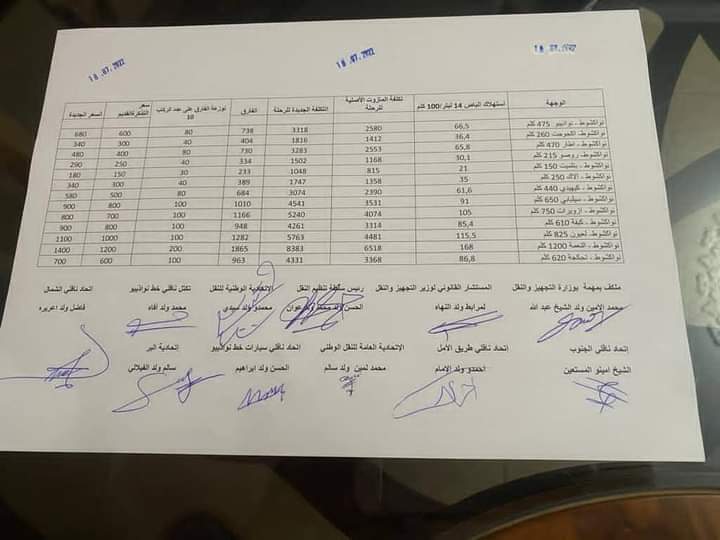 18.07.2022
18.07.2022
18.07.2022
الوجهة | استهلاك الباص 14 ليتر/100 كلم | تكلفة المازوت الأصلية للرحلة | التكلفة الجديدة للرحلة | الفارق | توزعة الفارق على عدد الركاب 18 | سعر التذكرة القديم | السعر الجديدة
نواكشوط - نواذيبو 475 كلم | 66,5 | 2580 | 3318 | 738 | 80 | 600 | 680
نواكشوط- اكجوجت 260 كلم | 36,4 | 1412 | 1816 | 404 | 40 | 300 | 340
نواكشوط - اطار 470 كلم | 65,8 | 2553 | 3283 | 730 | 80 | 400 | 480
نواكشوط - روصو 215 كلم | 30,1 | 1168 | 1502 | 334 | 40 | 250 | 290
نواكشوط - بتلميت 150 كلم | 21 | 815 | 1048 | 233 | 30 | 150 | 180
نواكشوط - ألاك 250 كلم | 35 | 1358 | 1747 | 389 | 40 | 300 | 340
نواكشوط - كيهيدي 440 كلم | 61,6 | 2390 | 3074 | 684 | 80 | 500 | 580
نواكشوط - سيلبابي 650 كلم | 91 | 3531 | 4541 | 1010 | 100 | 800 | 900
نواكشوط - ازويرات 750 كلم | 105 | 4074 | 5240 | 1166 | 100 | 700 | 800
نواكشوط - كيفة 610 كلم | 85,4 | 3314 | 4261 | 948 | 100 | 800 | 900
نواكشوط- لعيون 825 كلم | 115,5 | 4481 | 5763 | 1282 | 100 | 1000 | 1100
نواكشوط - النعمة 1200 كلم | 168 | 6518 | 8383 | 1865 | 200 | 1200 | 1400
نواكشوط - تجكجة 620 كلم | 86,8 | 3368 | 4331 | 963 | 100 | 600 | 700
مكلف بمهمة بوزارة التجهيز والنقل | المستشار القانوني لوزير التجهيز والنقل | رئيس سلطة تنظيم النقل | الإتحادية الوطنية للنقل | تكتل ناقلي خط نواذيبو | اتحاد ناقلي الشمال
محمد الامين ولد الشيخ عبد الله | لمرابط ولد التهاه | الحسن ولد محمد ولد عوان | محمدو ولد سيدي | محمد ولد آفاه | فاضل ولد اعريره
إتحاد ناقلي الجنوب | إتحاد ناقلي طريق الأمل | الإتحادية العامة للنقل الوطني | اتحاد ناقلي سيارات خط نواذيبو | إتحادية البر
الشيخ امينو المستعين | احمدو ولد الإمام | محمد لمين ولد سالم | الحسن ولد ابراهيم | سالم ولد الفيلالي